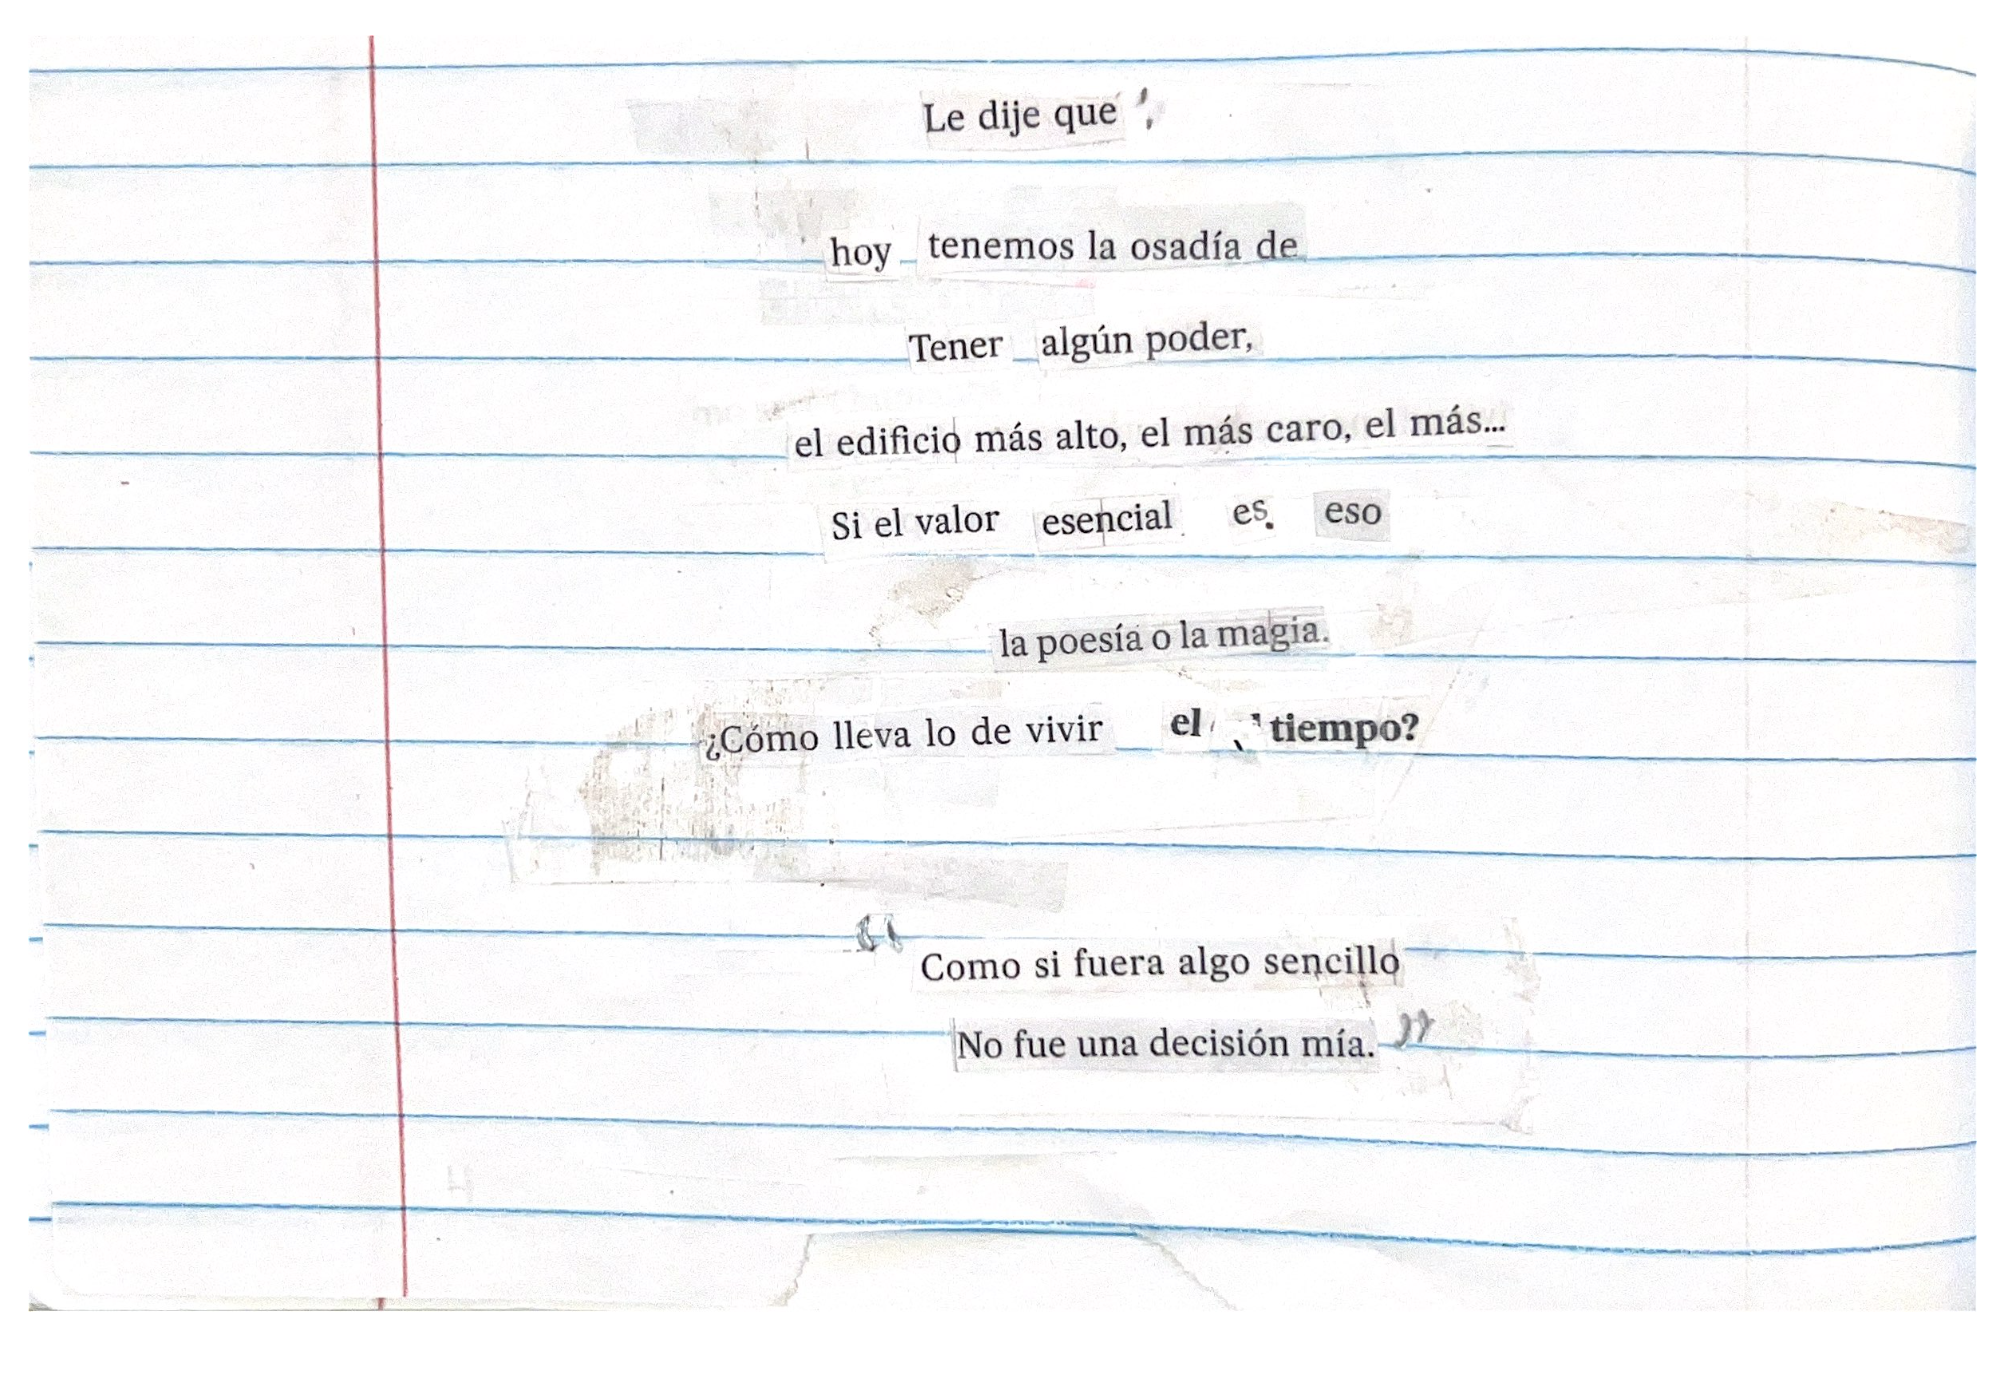 Le dije que
hoy tenemos la osadía de
Tener algún poder,
el edificio más alto, el más caro, el más...
Si el valor esencial es eso
la poesía o la magia.
¿Cómo lleva lo de vivir el tiempo?
“Como si fuera algo sencillo
No fue una decisión mía.”